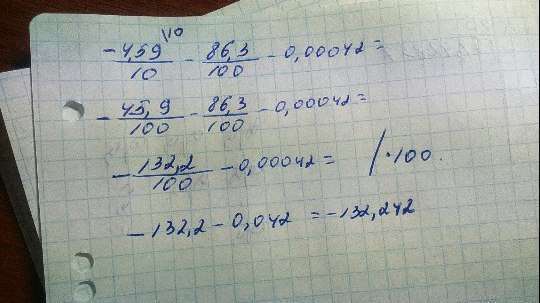 \10
-4,59/10 - 86,3/100 - 0,00042 =
- 45,9/100 - 86,3/100 - 0,00042 =
- 132,2/100 - 0,00042 = /·100.
- 132,2 - 0,042 = -132,242